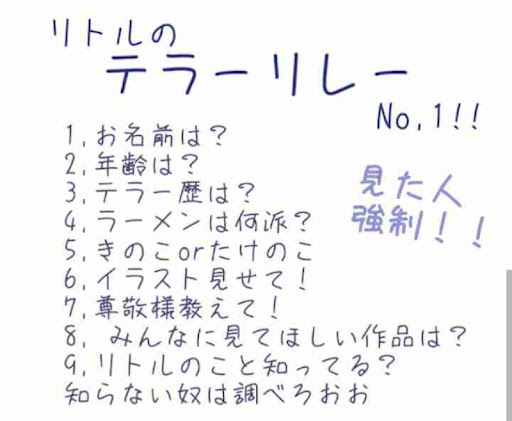 リトルの
テラーリレー
No.1!!
1,お名前は？
2,年齢は？
3,テラー歴は？
4,ラーメンは何派？
5,きのこorたけのこ
6,イラスト見せて！
7,尊敬様教えて！
8, みんなに見てほしい作品は？
9,リトルのこと知ってる？
知らない奴は調べろおお
見た人
強制！！